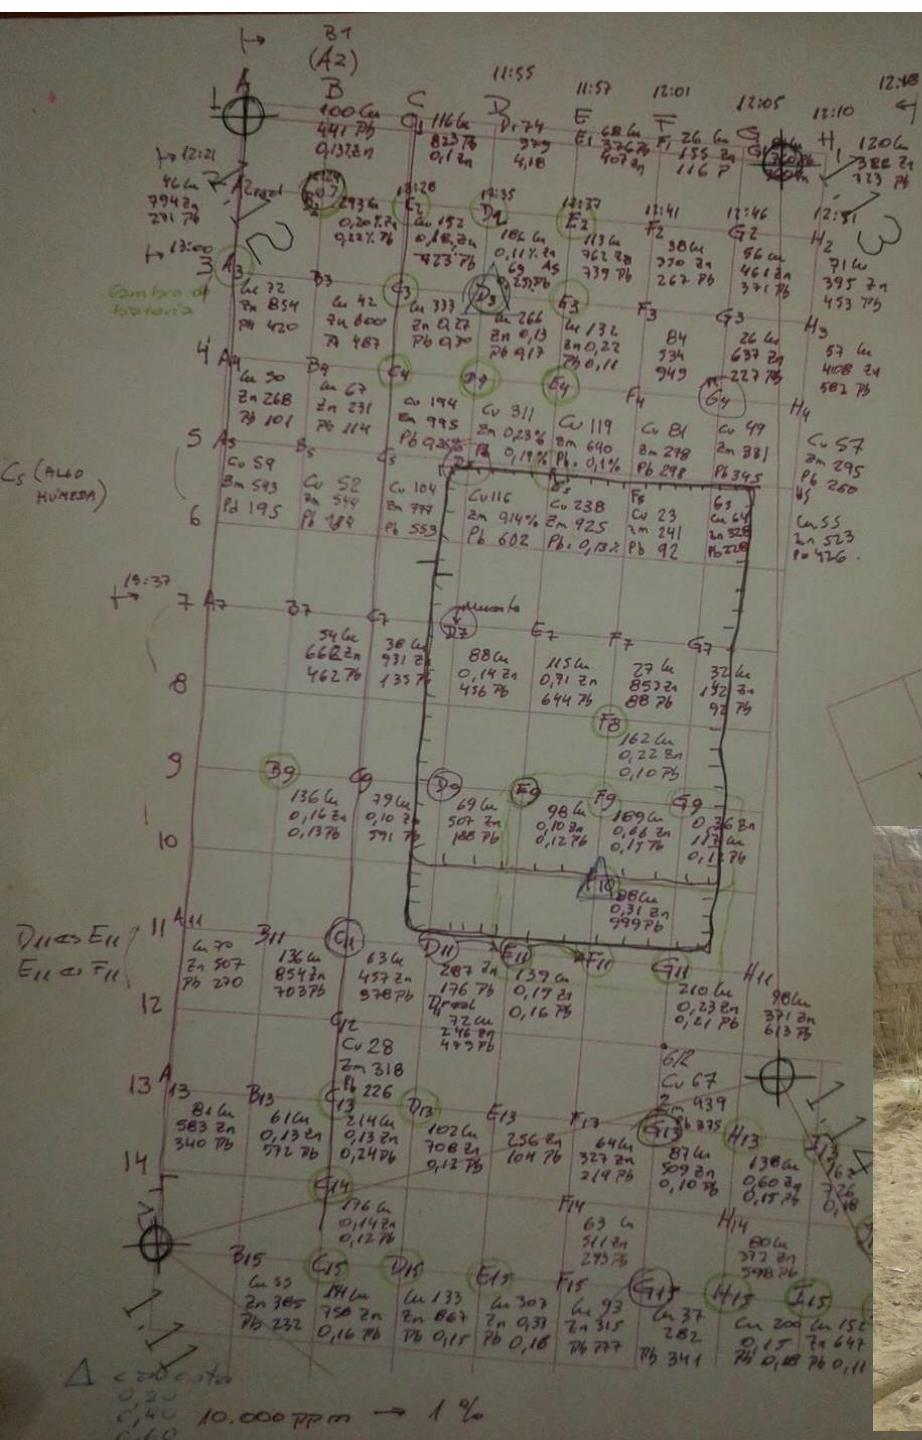 B1
(A2)
11:55
11:57
12:01
12:05
12:10
12:18
A
B
C
D
E
F
G
H
1
100 Cu
441 Pb
0,132 Zn
116 Cu
823 Pb
0,1 Zn
D1 74
979
4,18
E1 68 Cu
376 Pb
407 Zn
F1 26 Cu
155 Zn
116 P
120 Cu
322 Zn
323 Pb
12:21
46 Cu
794 Zn
271 Pb
2
A2 real
12:28
12:35
12:37
12:41
12:46
12:51
293 Cu
0,20% Zn
0,22% Pb
C2
Cu 152
423 Pb
D2
186 Cu
0,11% Zn
69 As
E2
113 Cu
762 Zn
739 Pb
F2
98 Cu
270 Zn
267 Pb
G2
56 Cu
461 Zn
371 Pb
H2
71 Cu
395 Zn
453 Pb
13:00
3
A3
Cambro de
bateria
Cu 72
Zn 854
Pb 420
B3
Cu 42
Zn 600
Pb 487
C3
Cu 337
Zn 0,27
Pb 0,30
D3
Cu 266
Zn 0,13
Pb 0,17
E3
Cu 132
Zn 0,22
Pb 0,11
F3
84
534
949
G3
26 Cu
637 Zn
227 Pb
H3
57 Cu
408 Zn
502 Pb
4
A4
Cu 50
Zn 268
Pb 101
B4
Cu 67
Zn 231
Pb 114
C4
Cu 194
Zn 995
Pb 0,26%
D4
Cu 311
Zn 0,23%
Pb 0,19%
E4
Cu 119
Zn 640
Pb 0,1%
F4
Cu 81
Zn 278
Pb 298
G4
Cu 49
Zn 381
Pb 345
H4
Cu 57
Zn 295
Pb 260
C5 (ALGO
HÚMEDA)
5
A5
Cu 59
Zn 593
Pb 195
B5
Cu 52
Zn 544
Pb 184
C5
Cu 104
Zn 777
Pb 553
Cu 116
Zn 0,14%
Pb 602
E5
Cu 238
Zn 925
Pb 0,13%
F5
Cu 23
Zn 241
Pb 92
G5
Cu 64
Zn 328
Pb 228
H5
Cu 55
Zn 523
Pb 426
6
13:37
7
A7
B7
54 Cu
662 Zn
462 Pb
C7
38 Cu
931 Zn
135 Pb
D7
88 Cu
0,14 Zn
456 Pb
E7
115 Cu
0,71 Zn
644 Pb
F7
27 Cu
853 Zn
88 Pb
G7
32 Cu
192 Zn
92 Pb
8
F8
162 Cu
0,22 Zn
0,10 Pb
9
B9
136 Cu
0,16 Zn
0,13 Pb
C9
79 Cu
0,10 Zn
591 Pb
D9
69 Cu
507 Zn
188 Pb
E9
98 Cu
0,10 Zn
0,12 Pb
F9
189 Cu
0,66 Zn
0,15 Pb
G9
0,26 Zn
117 Cu
0,12 Pb
10
F10
88 Cu
0,31 Zn
999 Pb
D11 ⇔ E11
E11 ⇔ F11
11
A11
Cu 70
Zn 507
Pb 270
B11
136 Cu
854 Zn
703 Pb
C11
63 Cu
457 Zn
978 Pb
D11
287 Zn
176 Pb
D11 real
72 Cu
246 Zn
479 Pb
E11
139 Cu
0,19 Zn
0,16 Pb
F11
G11
210 Cu
0,23 Zn
0,21 Pb
H11
98 Cu
371 Zn
613 Pb
12
C12
Cu 28
Zn 318
Pb 226
G12
Cu 67
Zn 939
Pb 375
13
A13
81 Cu
583 Zn
340 Pb
B13
61 Cu
0,13 Zn
572 Pb
C13
214 Cu
0,13 Zn
0,24 Pb
D13
102 Cu
708 Zn
0,12 Pb
E13
256 Zn
104 Pb
F13
64 Cu
327 Zn
219 Pb
G13
87 Cu
509 Zn
0,10 Pb
H13
138 Cu
0,60 Zn
0,15 Pb
I13
162
726
0,18
14
C14
176 Cu
0,14 Zn
0,12 Pb
F14
63 Cu
511 Zn
293 Pb
H14
80 Cu
372 Zn
598 Pb
B15
Cu 55
Zn 385
Pb 232
C15
141 Cu
750 Zn
0,16 Pb
D15
Cu 133
Zn 867
Pb 0,15
E15
Cu 307
Zn 0,33
Pb 0,18
F15
Cu 93
Zn 315
Pb 777
G15
Cu 37
282
Pb 341
H15
Cu 200
0,15
Pb 0,18
I15
Cu 152
Zn 647
Pb 0,11
0,20
0,40
0,60
10.000 ppm → 1 %